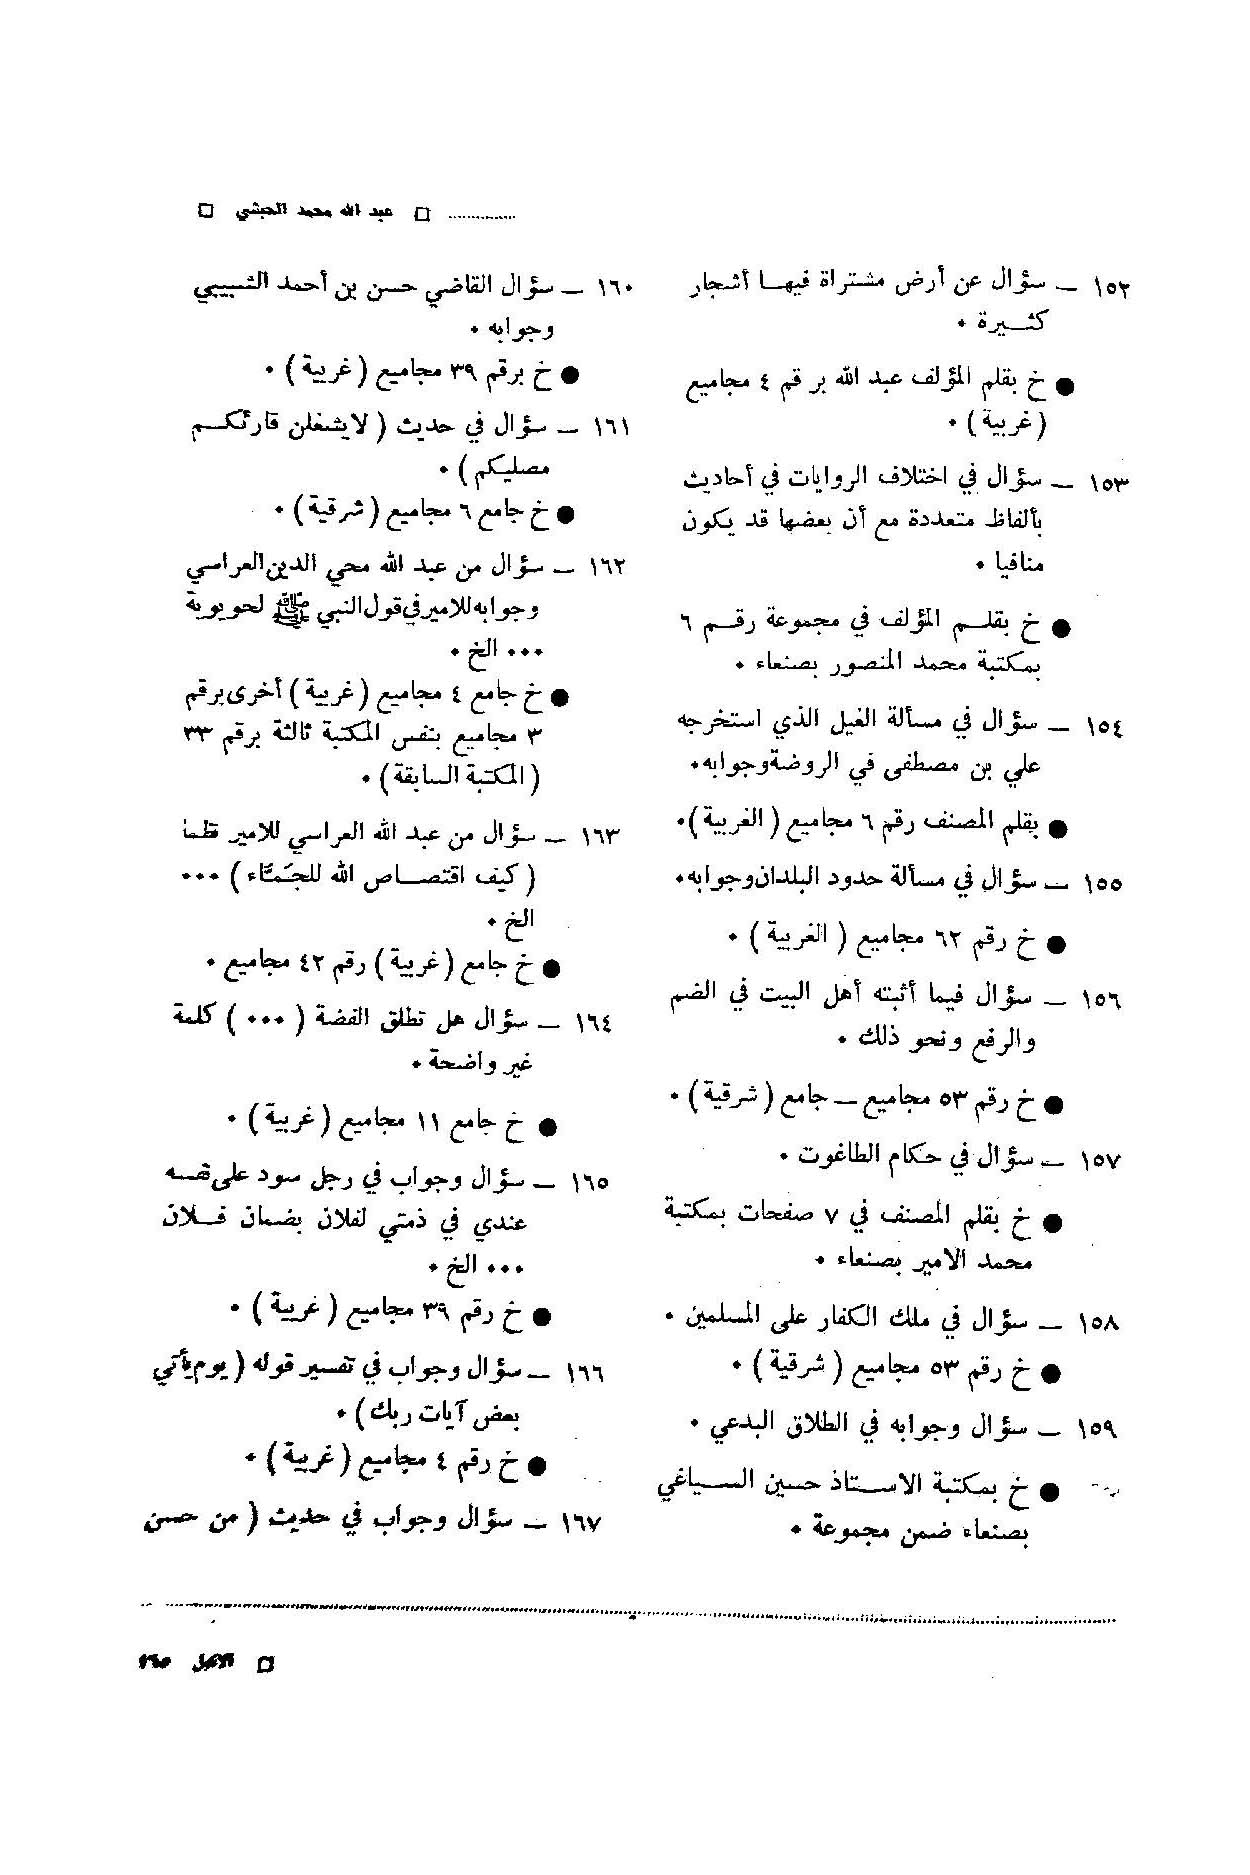 □ عبد الله محمد الحبشي □
١٥٢ ــ سؤال عن أرض مشتراة فيهــا أشجار
كثــيرة ٠
● خ بقلم المؤلف عبد الله برقم ٤ مجاميع
( غربية ) ٠
١٥٣ ــ سؤال في اختلاف الروايات في أحاديث
بألفاظ متعددة مع أن بعضها قد يكون
منافيا ٠
● خ بقلــم المؤلف في مجموعة رقــم ٦
بمكتبة محمد المنصور بصنعاء ٠
١٥٤ ــ سؤال في مسألة الغيل الذي استخرجه
علي بن مصطفى في الروضة وجوابه٠
● بقلم المصنف رقم ٦ مجاميع ( الغربية )٠
١٥٥ ــ سؤال في مسألة حدود البلدان وجوابه٠
● خ رقم ٦٢ مجاميع ( الغربية ) ٠
١٥٦ ــ سؤال فيما أثبته أهل البيت في الضم
والرفع ونحو ذلك ٠
● خ رقم ٥٣ مجاميع ــ جامع ( شرقية ) ٠
١٥٧ ــ سؤال في حكام الطاغوت ٠
● خ بقلم المصنف في ٧ صفحات بمكتبة
محمد الامير بصنعاء ٠
١٥٨ ــ سؤال في ملك الكفار على المسلمين ٠
● خ رقم ٥٣ مجاميع ( شرقية ) ٠
١٥٩ ــ سؤال وجوابه في الطلاق البدعي ٠
● خ بمكتبة الاســتاذ حسين الســياغي
بصنعاء ضمن مجموعة ٠
١٦٠ ــ سؤال القاضي حسن بن أحمد الشبيبي
وجوابه ٠
● خ برقم ٣٩ مجاميع ( غربية ) ٠
١٦١ ــ سؤال في حديث ( لايشغلن قارئكــم
مصليكم ) ٠
● خ جامع ٦ مجاميع ( شرقية ) ٠
١٦٢ ــ سؤال من عبد الله محي الدين العراسي
وجوابه للامير في قول النبي ﷺ لحويوية
٠٠٠ الخ ٠
● خ جامع ٤ مجاميع ( غربية ) أخرى برقم
٣ مجاميع بنفس المكتبة ثالثة برقم ٣٣
( المكتبة السابقة ) ٠
١٦٣ ــ سؤال من عبد الله العراسي للامير نظما
( كيف اقتصــاص الله للجَمَّاء ) ٠٠٠
الخ ٠
● خ جامع ( غربية ) رقم ٤٢ مجاميع ٠
١٦٤ ــ سؤال هل تطلق الفضة ( ٠٠٠ ) كلمة
غير واضحة ٠
● خ جامع ١١ مجاميع ( غربية ) ٠
١٦٥ ــ سؤال وجواب في رجل سود على نفسه
عندي في ذمتي لفلان بضمان فــلان
٠٠٠ الخ ٠
● خ رقم ٣٩ مجاميع ( غربية ) ٠
١٦٦ ــ سؤال وجواب في تفسير قوله ( يوم يأتي
بعض آيات ربك ) ٠
● خ رقم ٤ مجاميع ( غربية ) ٠
١٦٧ ــ سؤال وجواب في حديث ( من حسن
□ الاكليل ١٦٥